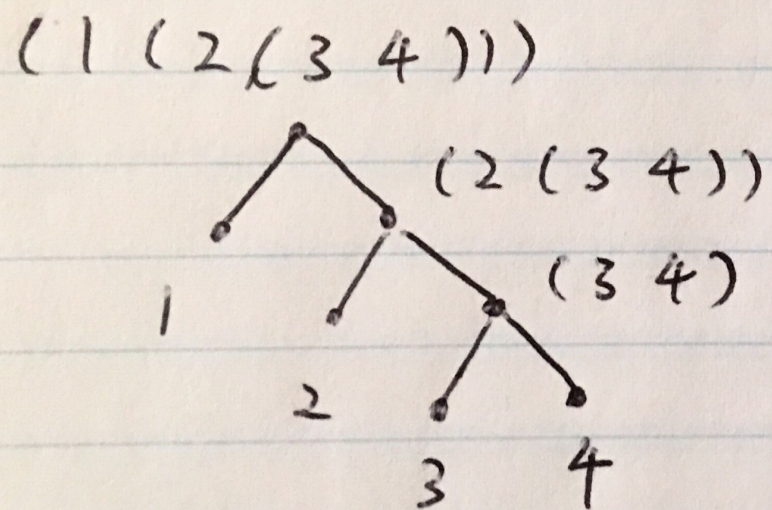 (1 (2 (3 4)))
(2 (3 4))
(3 4)
1
2
3 4